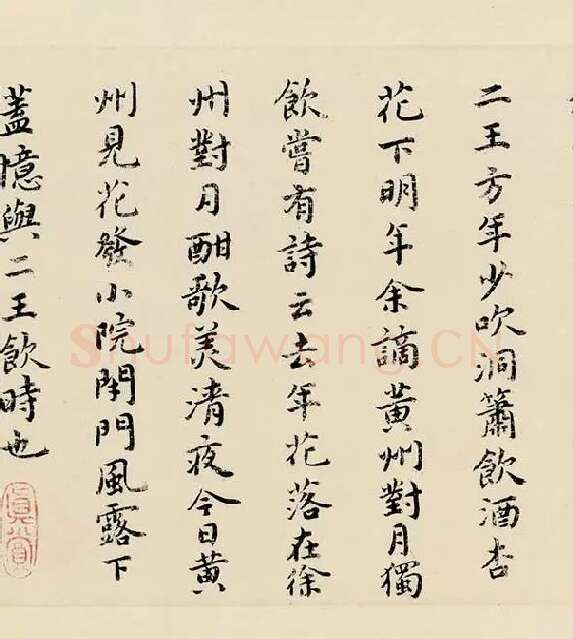 二王方年少吹洞簫飲酒杏
花下明年余謫黃州對月獨
飲嘗有詩云去年花落在徐
州對月酣歌美清夜今日黃
州見花發小院閉門風露下
蓋憶與二王飲時也
Shufawang.CN